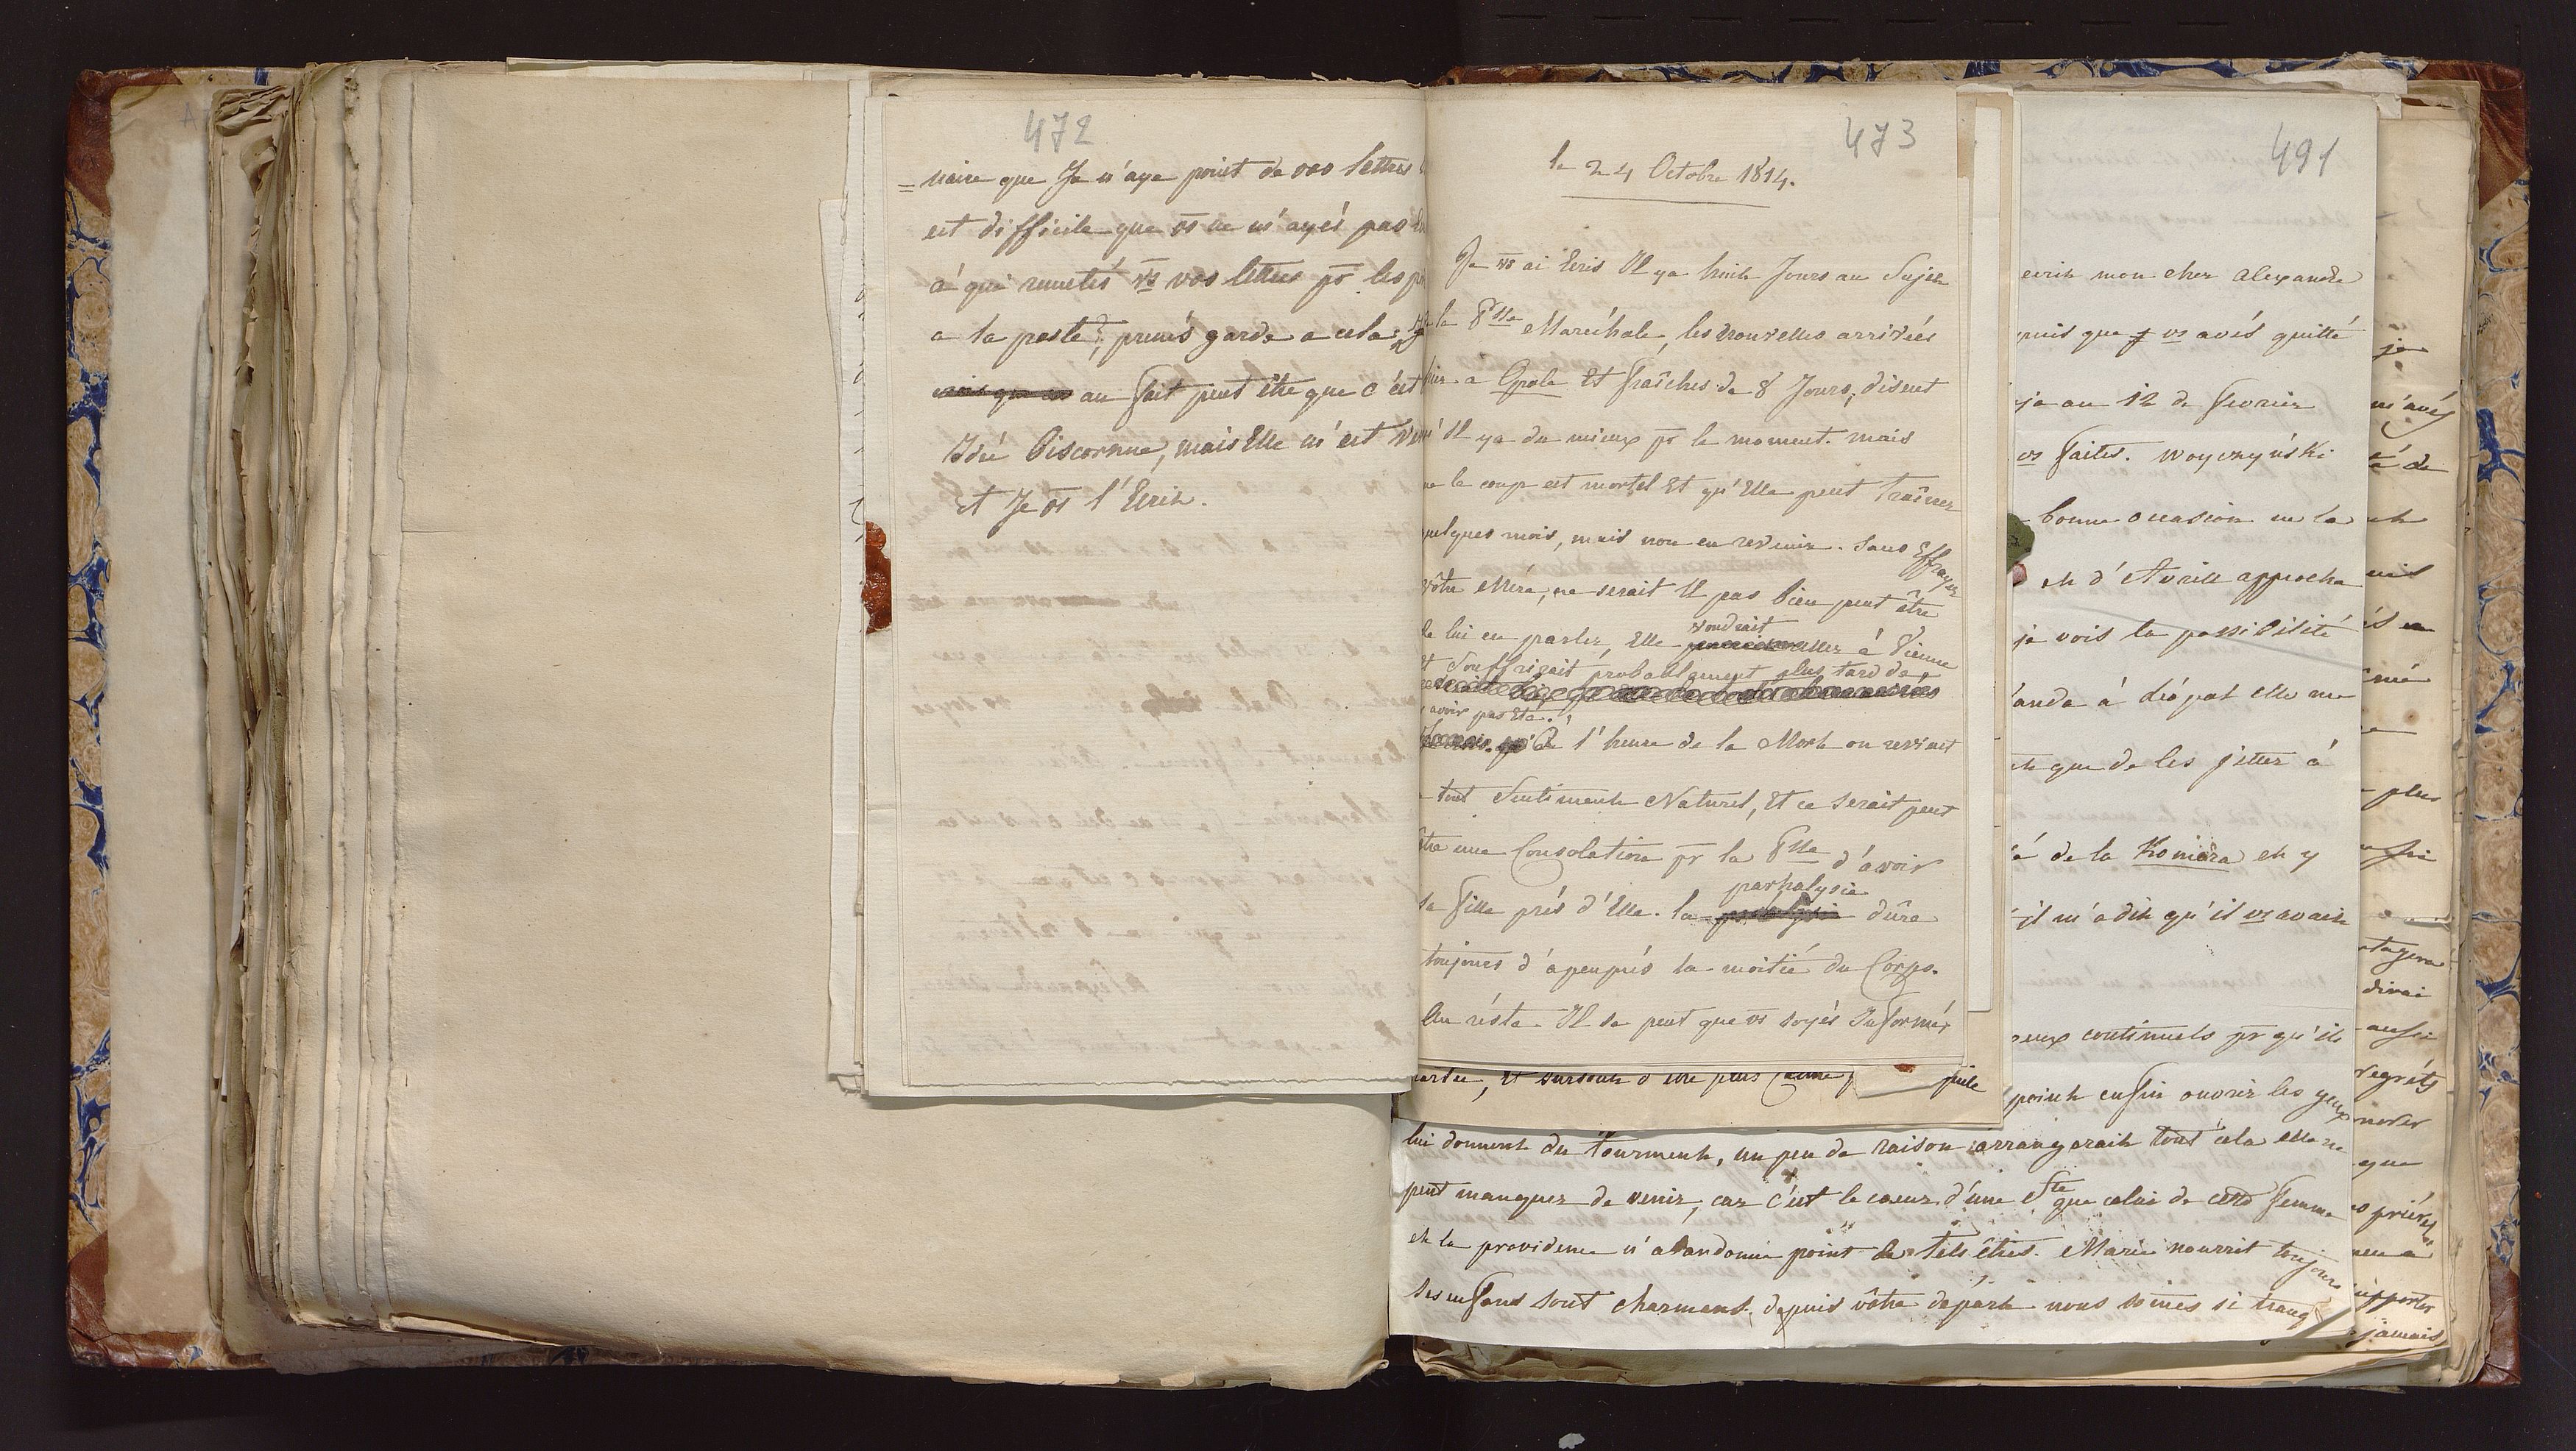 472
= naire que Je n'aye point de vos lettres
est difficile que vs ne m'ayés pas
à qui remetés vs vos lettres pr les
a la poste? prenés garde a cela
au fait peut être que c'est
Idée biscornue, mais Elle m'est
Et Je vs l'Ecris.
473
le 24 Octobre 1814.
Je vs ai Ecris Il ya huit Jours au Sujet
la Psse Maréchale, les nouvelles arrivées
hier a Opole Et fraîches de 8 Jours, disent
Il ya du mieux pr le moment. mais
le coup est mortel Et qu'Elle peut traîner
quelques mois, mais non en revenir. Sans Effrayer
vôtre Mére, ne serait Il pas bien peut être
de lui en parler, Elle voudrait aller à Vienne
Et Souffrirait probablement plus tard de
avoir pas Eté.
l'heure de la Mort on revient
tout Sentiment Naturel, Et ce serait peut
être une Consolation pr la Psse d'avoir
sa fille prés d'Elle. la parhalysie dûre
toujours d'apeuprés la moitié du Corps.
Au réste Il se peut que vs soyés Informés
et surtout d'une plus
491
ecrit mon cher alexandre
puis que vs avés quitté
ja au 12 de fevrier
vs faites. woyczyński
bonne occasion en la
et d'Avrill approche
je vois la possibilité
à dépot elle me
que de les jetter à
é de la Komora et y
il m'a dit qu'il vs avait
continuels pr qu'ils
point enfin ouvrir les yeux
lui donnent du tourment, un peu de raison arrangerait tout cela elle ne
peut manquer de venir, car c'est le coeur d'une Ste que celui de cette femme
et la providence n'abandonne point de tels êtres. Marie nourrit toujours
ses enfans sont charmans. depuis vôtre départ nous somes si tranq
je
m'avés
té de
plus
dirai
aussi
regréts
que
prières
jamais